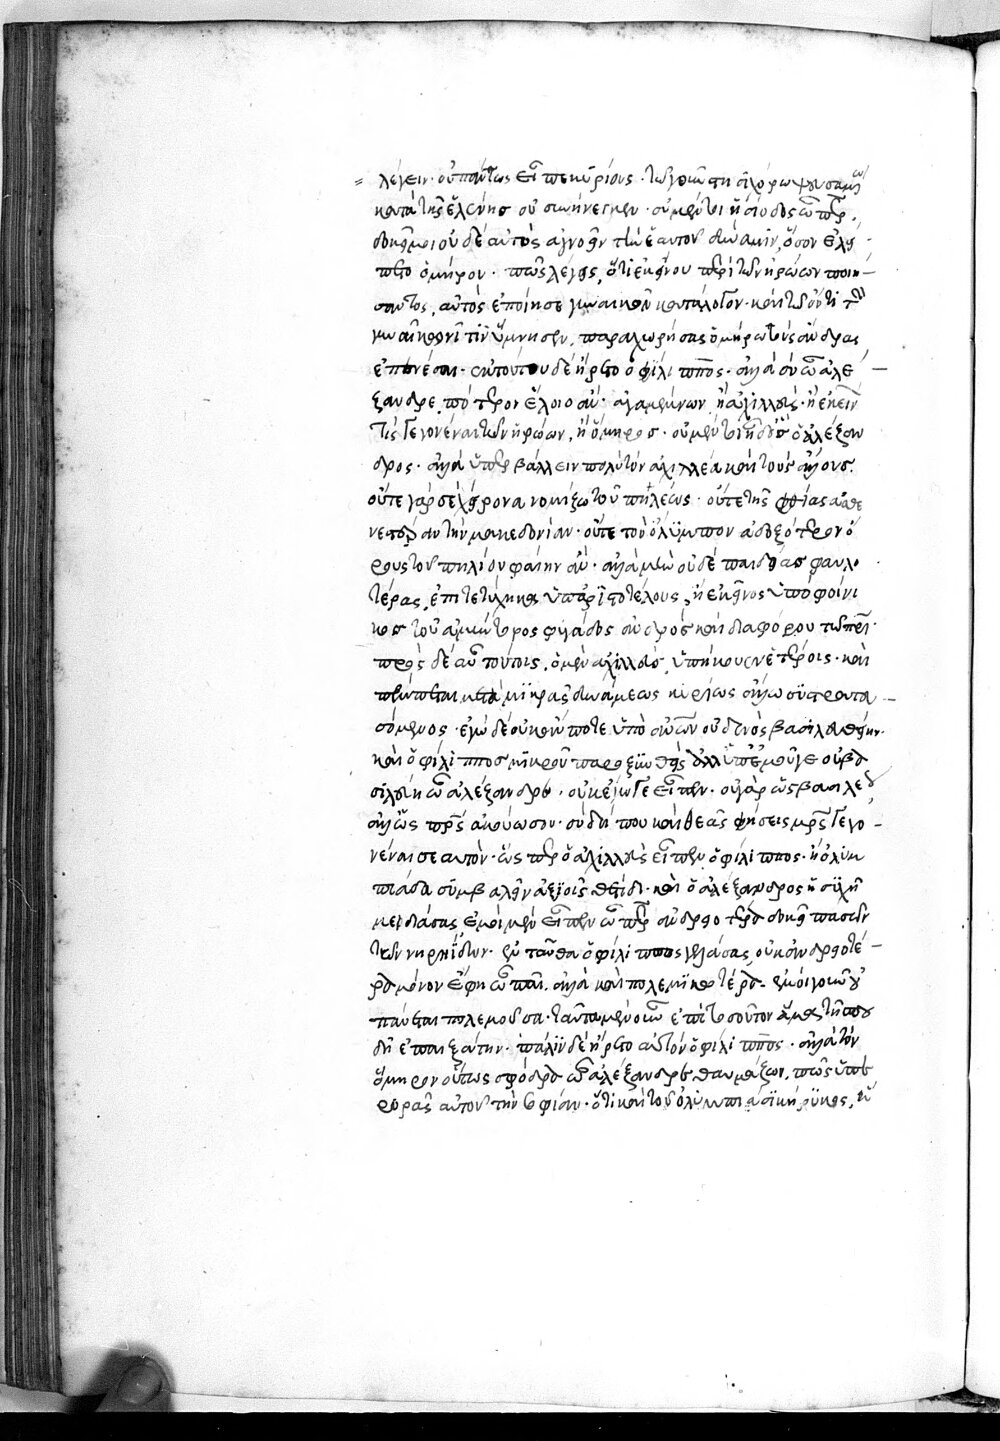 λέγειν· οὐ πάντως εἶπε κυρίους· τῷ γοῦν στησιχόρῳ ψευσαμένῳ
κατὰ τῆς ἑλένης οὐ συνήνεγκεν· ὁ μέντοι ἡσίοδος ὦ πάτερ,
δοκεῖ μοι οὐδὲ αὐτὸς ἀγνοεῖν τὴν ἑαυτοῦ δύναμιν, ὅσον ἐλεί
πετο ὁμήρου· πῶς λέγεις, ὅτι ἐκείνου περὶ τῶν ἡρώων ποιή
σαντος, αὐτὸς ἐποίησε γυναικῶν κατάλογον· καὶ τῷ ὄντι τὴν
γυναικωνῖτιν ὕμνησεν, παραχωρήσας ὁμήρῳ τοὺς ἄνδρας
ἐπαινέσαι· ἐκ τούτου δὲ ἤρετο ὁ φίλιππος· ἀλλὰ σὺ ὦ ἀλέ
ξανδρε, πότερον ἕλοιο ἂν ἀγαμέμνων ἢ ἀχιλλεὺς ἢ ἐκείνων
τις γεγονέναι τῶν ἡρώων, ἢ ὅμηρος· οὐ μέντοι ἦ δ' ὃς ὁ ἀλέξαν
δρος· ἀλλὰ ὑπερβάλλειν πολὺ τὸν ἀχιλλέα καὶ τοὺς ἄλλους.
οὔτε γὰρ σὲ χείρονα νομίζω τοῦ πηλέως· οὔτε τῆς φθίας ἀσθε
νεστέραν τὴν μακεδονίαν· οὔτε τὸν ὄλυμπον ἀδοξότερον ὄ
ρος τοῦ πηλίου φαίην ἄν· ἀλλὰ μὴν οὐδὲ παιδείας φαυλο
τέρας ἐπιτετύχηκα ὑπ' ἀριστοτέλους, ἢ ἐκεῖνος ὑπὸ φοίνι
κος τοῦ ἀμύντορος φυγάδος ἀνδρὸς καὶ διαφόρου τῷ πατρί·
πρὸς δὲ αὖ τούτοις, ὁ μὲν ἀχιλλεὺς, ὑπήκουεν ἑτέροις· καὶ
πέμπεται μετὰ μικρᾶς δυνάμεως οὐ κύριος ἄλλῳ συστρατευ
σόμενος· ἐγὼ δὲ οὐκ ἄν ποτε ὑπὸ ἀνθρώπων οὐδενὸς βασιλευθείην.
καὶ ὁ φίλιππος μικροῦ παροξυνθεὶς ἀλλ' ὑπ' ἐμοῦ γε οὐ βα
σιλεύῃ ὦ ἀλέξανδρε· οὐκ ἔγωγε εἶπεν· οὐ γὰρ ὡς βασιλέως,
ἀλλ' ὡς πατρὸς ἀκούω σου· οὐ δή που καὶ θεᾶς φήσεις μητρὸς γεγο
νέναι σεαυτόν· ὥσπερ ὁ ἀχιλλεὺς εἶπεν ὁ φίλιππος· ἢ ὀλυμ
πιάδα συμβαλεῖν ἀξιοῖς θέτιδι· καὶ ὁ ἀλέξανδρος ἡσυχῇ
μειδιάσας ἐμοὶ μὲν εἶπεν ὦ πάτερ ἀνδρειοτέρα δοκεῖ πασῶν
τῶν νηρηίδων· ἐνταῦθα ὁ φίλιππος γελάσας, οὐκ ἀνδρειοτέ
ρα μόνον ἔφη ὦ παῖ, ἀλλὰ καὶ πολεμικωτέρα· ἐμοὶ γοῦν οὐ
παύεται πολεμοῦσα· ταῦτα μὲν οὖν ἐπὶ τοσοῦτον ἅμα τῇ σπου
δῇ ἐπαιξάτην· πάλιν δὲ ἤρετο αὐτὸν ὁ φίλιππος· ἀλλὰ τὸν
ὅμηρον οὕτως σφόδρα ὦ ἀλέξανδρε θαυμάζων, πῶς ὑπε
ρορᾷς αὐτοῦ τὴν σοφίαν· ὅτι καὶ τοῦ ὀλυμπιάσι κήρυκος, ἔφη